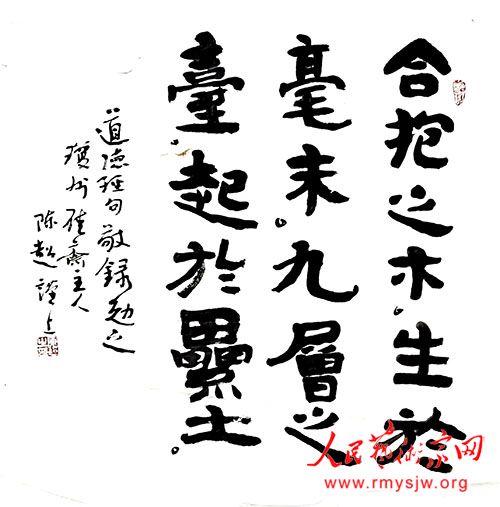 合抱之木生於
毫末。九層之
臺起於纍土。
道德經句敬録勉之
斋主人
陈超謹上
人民藝術家网
www.rmysjw.org